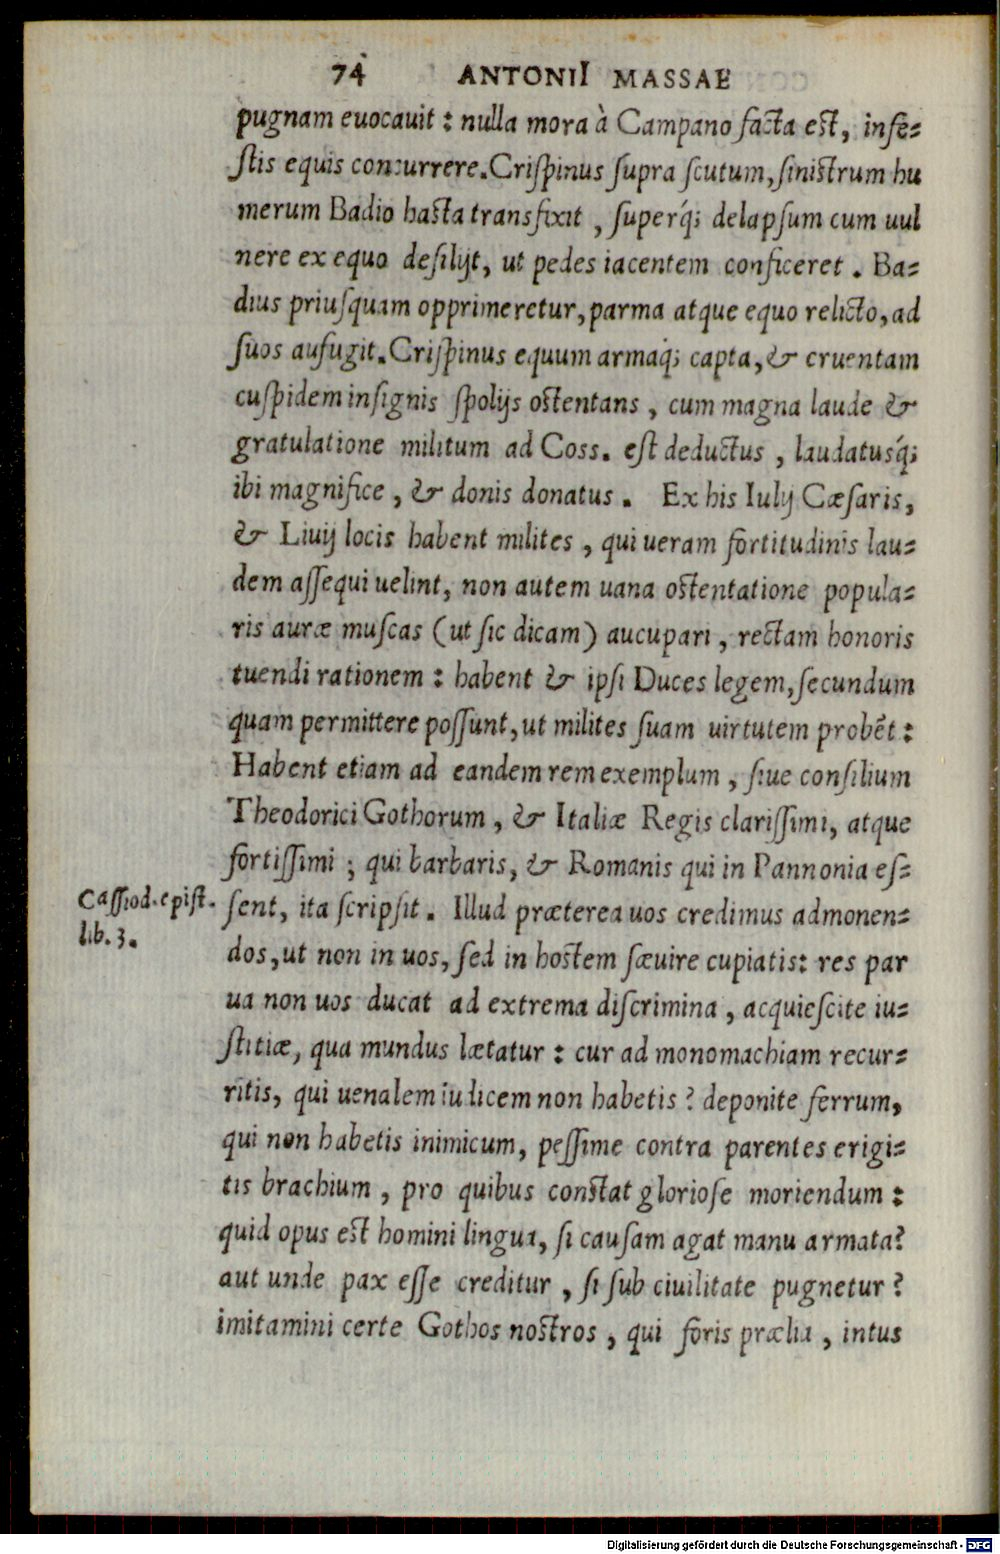 74 ANTONII MASSAE
pugnam euocauit : nulla mora à Campano facta est, infe-
ſtis equis concurrere. Criſpinus ſupra ſcutum, ſinistrum hu
merum Badio hasta transfixit , ſuperq́; delapſum cum uul
nere ex equo deſilijt, ut pedes iacentem conficeret . Ba-
dius priuſquam opprimeretur, parma atque equo relicto, ad
ſuos aufugit. Criſpinus equum armaq́; capta, & cruentam
cuſpidem inſignis ſpolijs ostentans , cum magna laude &
gratulatione militum ad Coss. eſt deductus , laudatusq́;
ibi magnifice , & donis donatus . Ex his Iulij Cæſaris,
& Liuij locis habent milites , qui ueram fortitudinis lau-
dem aſſequi uelint, non autem uana ostentatione popula-
ris auræ muſcas (ut ſic dicam) aucupari , rectam honoris
tuendi rationem : habent & ipſi Duces legem, ſecundum
quam permittere poſſunt, ut milites ſuam uirtutem probēt :
Habent etiam ad eandem rem exemplum , ſiue conſilium
Theodorici Gothorum , & Italiæ Regis clariſſimi, atque
fortiſſimi ; qui barbaris, & Romanis qui in Pannonia eſ-
Caſſiod. epiſt.
lib. 3.
ſent, ita ſcripſit . Illud præterea uos credimus admonen-
dos, ut non in uos, ſed in hostem ſæuire cupiatis: res par
ua non uos ducat ad extrema diſcrimina , acquieſcite iu-
ſtitiæ, qua mundus lætatur : cur ad monomachiam recur-
ritis, qui uenalem iudicem non habetis ? deponite ferrum,
qui non habetis inimicum, peſſime contra parentes erigi-
tis brachium , pro quibus constat glorioſe moriendum :
quid opus est homini lingua, ſi cauſam agat manu armata?
aut unde pax eſſe creditur , ſi ſub ciuilitate pugnetur ?
imitamini certe Gothos nostros , qui foris prælia , intus
Digitalisierung gefördert durch die Deutsche Forschungsgemeinschaft - DFG